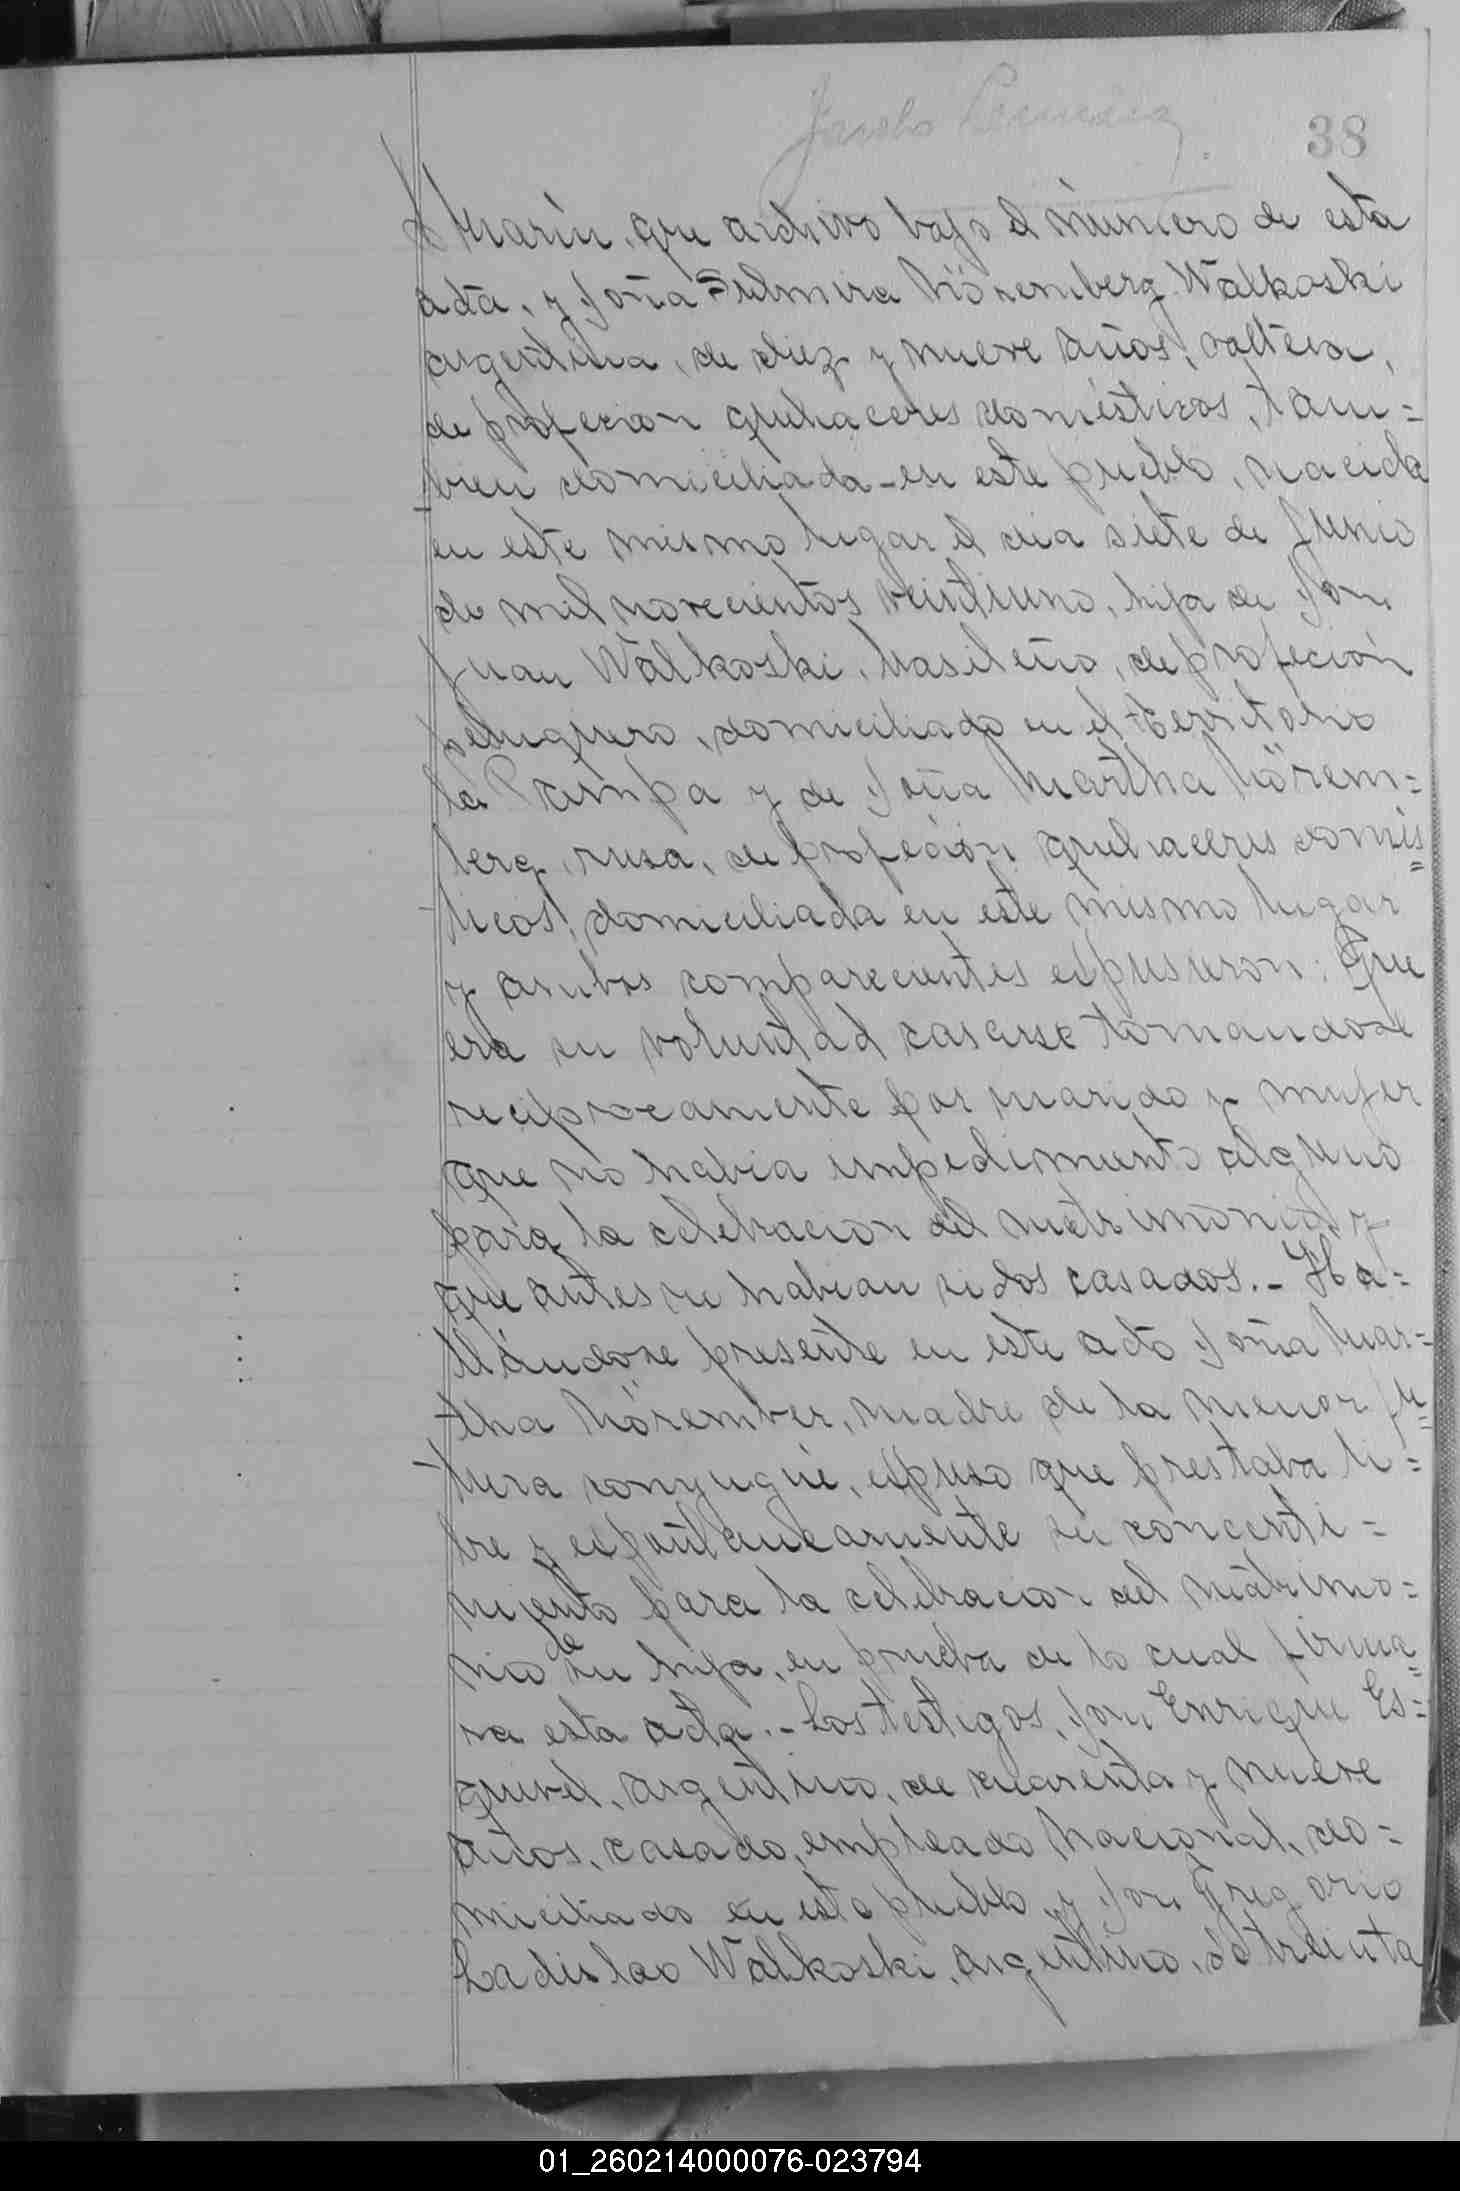 38
Marin, que archivo bajo el número de esta
acta, y Doña Delmira Nöremberg Walkoski
argentina, de diez y nueve años, soltera,
de profecion quehaceres domésticos, tam=
bien domiciliada en este pueblo, nacida
en este mismo lugar el dia siete de Junio
de mil novecientos veintiuno, hija de Don
Juan Walkoski, brasileño, de profecion
peluquero, domiciliado en el territorio
La Pampa y de Doña Martha Nörem=
berg, rusa, de profeción quehaceres domés=
ticos, domiciliada en este mismo lugar
y ambos comparecientes expusieron: Que
era su voluntad casarse tomandose
reciprocamente por marido y mujer
que no habia impedimento alguno
para la celebracion del matrimonio y
que antes no habian sidos casados.- Ha=
llándose presente en este acto Doña Mar=
tha Nörember, madre de la menor fu=
tura conyugue, expuso que prestaba li=
bre y espontaneamente su concenti=
miento para la celebracion del matrimo=
nio de su hija, en prueba de lo cual firma=
ra esta acta.- Los testigos, Don Enrique Es=
quivel, argentino, de cuarenta y nueve
años, casado, empleado Nacional, do=
miciliado en este pueblo y Don Gregorio
Ladislao Walkoski, argentino, de treinta
01_260214000076-023794